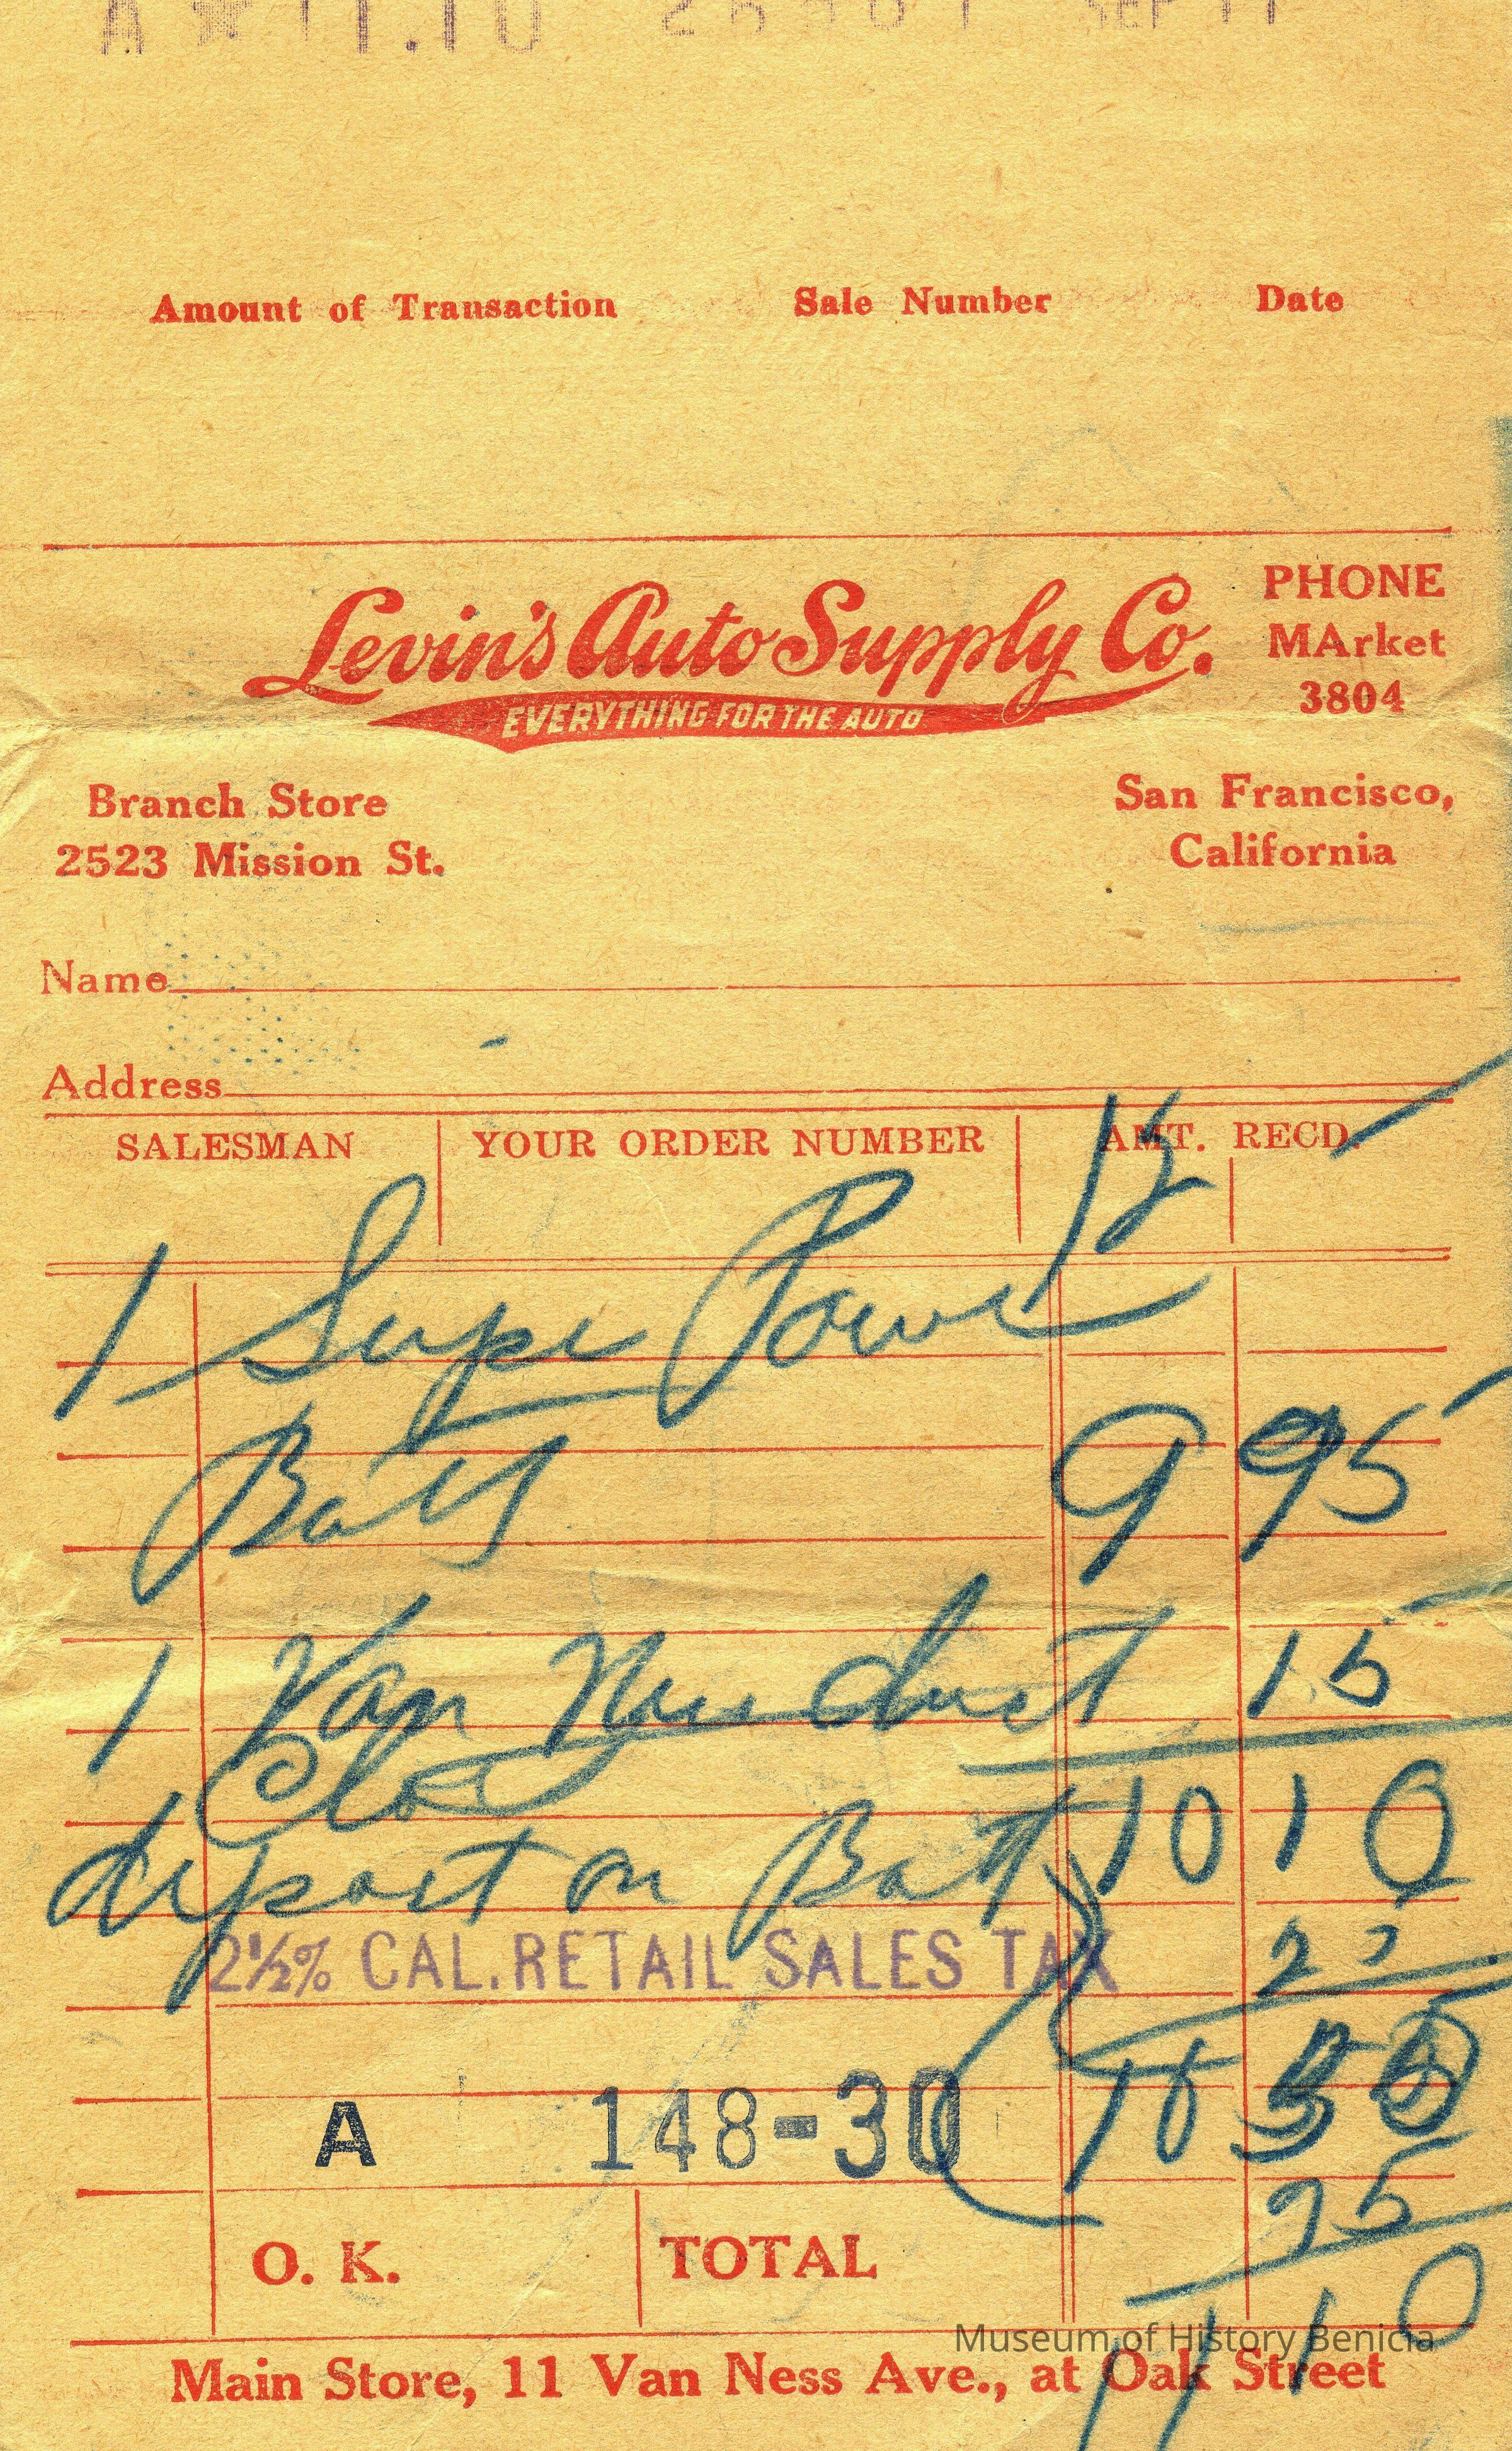 A * 11.10 SEP 11
Amount of Transaction Sale Number Date
Levin's Auto Supply Co.
EVERYTHING FOR THE AUTO
PHONE
MArket
3804
Branch Store
2523 Mission St.
San Francisco,
California
Name
Address
SALESMAN YOUR ORDER NUMBER AMT. RECD.
1 Supe Power
Batty 9 95
1 Van Nu dust 15
Clo 10 10
deposit on Batt
2½% CAL. RETAIL SALES TAX 25
A 148-30 10
75
O. K. TOTAL
11 10
Museum of History Benicia
Main Store, 11 Van Ness Ave., at Oak Street